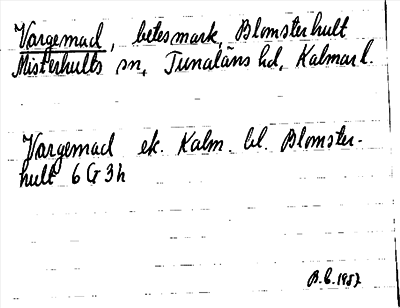 Vargemad, betesmark, Blomsterhult
Misterhults sn, Tunaläns hd, Kalmar l.
Vargemad ek. Kalm. bl. Blomster-
hult 6 G 3 h
B.C. 1957